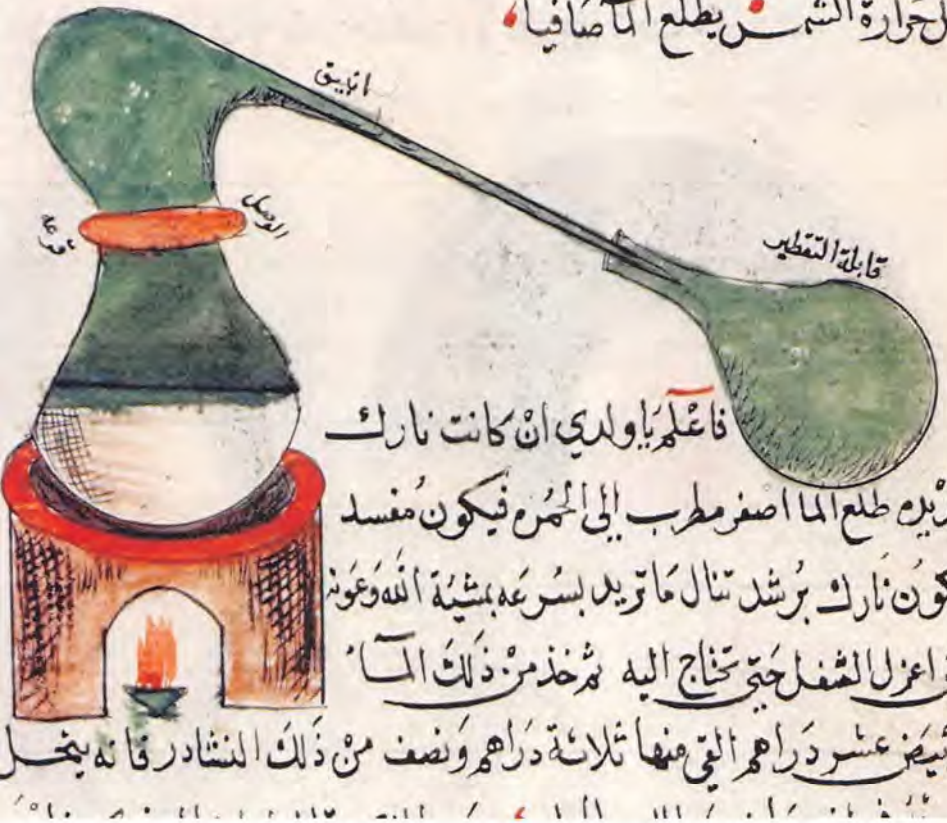 حرارة الشمس يطلع الما صافيا
انبيق
الوصل
قرعه
قابلة التقطير
فاعْلم يَا ولدي انْ كانت نارك
طلع الما اصفر مطرب إلى الحمره فيكون مُفسد
نَارك بُرشد تنال مَا تريد بسُرعَه بمشيّة الله وَعَونه
اعزل الثفل حَتى تحتاج اليه ثم خذ منْ ذَلكَ المآء
عشر دَراهم القي منها ثلاثة دَراهم وَنصف منْ ذَلكَ النشادر فانه ينحل